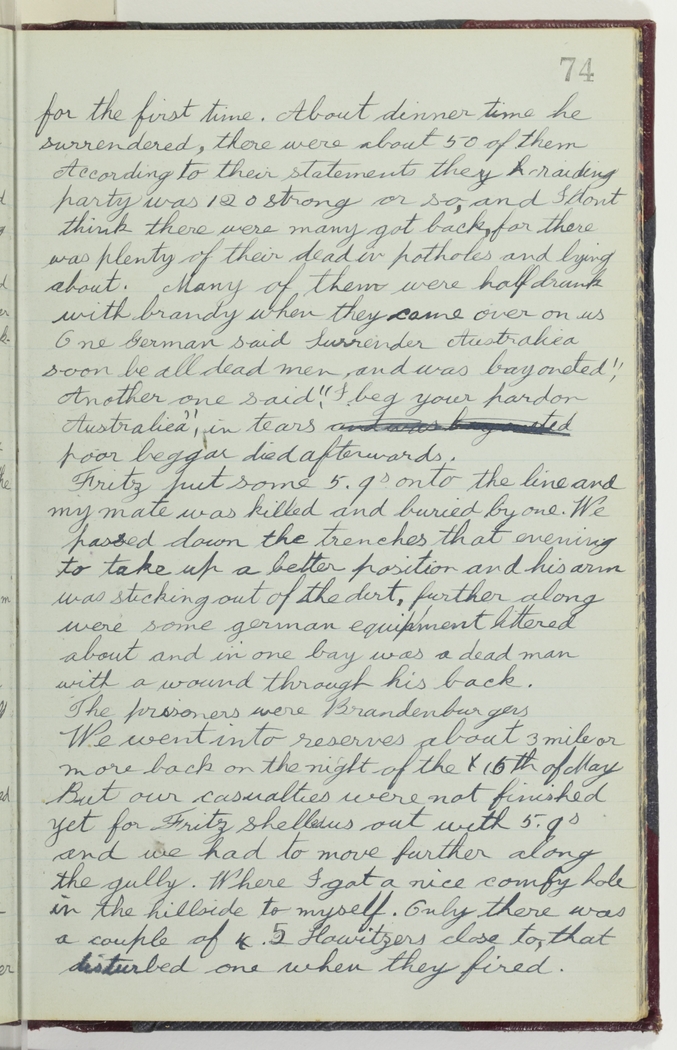 74
for the first time. About dinner time he
surrendered, there were about 50 of them
According to their statements they raiding
party was 120 strong or so, and I dont
think there were many got back, for there
was plenty of their dead in potholes and lying
about. Many of them were half drunk
with brandy when they came over on us
One German said Surrender Australiea
soon be all dead men, and was bayoneted"
Another one said" I beg your pardon
Australiea", in tears and was bayoneted
poor beggar died afterwards.
Fritz put some 5.9s onto the line and
my mate was killed and buried by one. We
passed down the trenches that evening
to take up a better position and his arm
was sticking out of the dirt, further along
were some german equipment littered
about and in one bay was a dead man
with a wound through his back.
The prisoners were Brandenburgers
We went into reserves about 3 mile or
more back on the night of the 16th of May
But our casualties were not finished
yet for Fritz shelled us out with 5.9s
and we had to move further along
the gully. Where I got a nice comfy hole
in the hillside to myself. Only there was
a couple of 4.5 Howitzers close to, that
disturbed one when they fired.